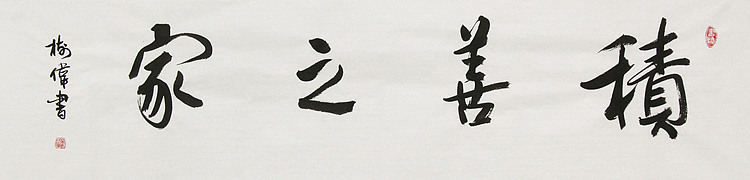 積善之家
樹偉書